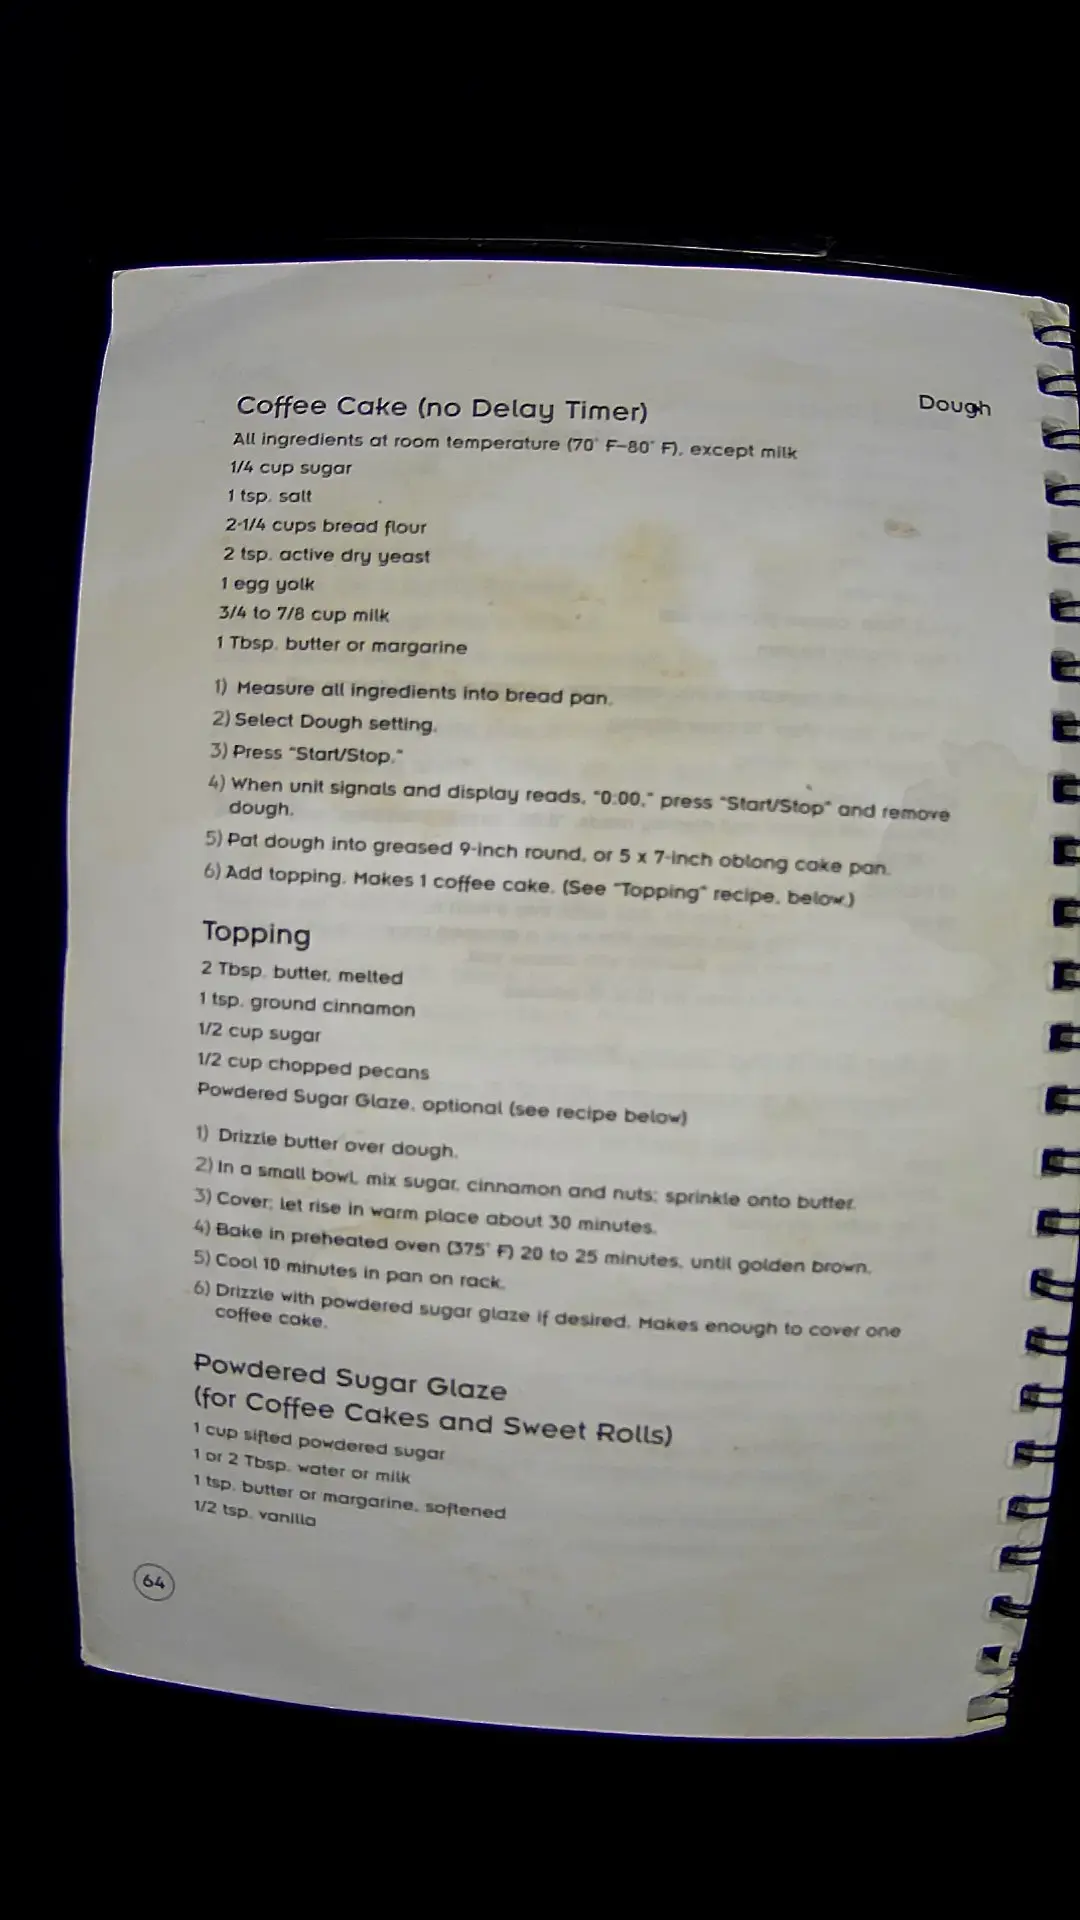 Dough
Coffee Cake (no Delay Timer)
All ingredients at room temperature (70° F–80° F), except milk
1/4 cup sugar
1 tsp. salt
2-1/4 cups bread flour
2 tsp. active dry yeast
1 egg yolk
3/4 to 7/8 cup milk
1 Tbsp. butter or margarine
1) Measure all ingredients into bread pan.
2) Select Dough setting.
3) Press "Start/Stop."
4) When unit signals and display reads, "0:00," press "Start/Stop" and remove
dough.
5) Pat dough into greased 9-inch round, or 5 x 7-inch oblong cake pan.
6) Add topping. Makes 1 coffee cake. (See "Topping" recipe, below.)
Topping
2 Tbsp. butter, melted
1 tsp. ground cinnamon
1/2 cup sugar
1/2 cup chopped pecans
Powdered Sugar Glaze, optional (see recipe below)
1) Drizzle butter over dough.
2) In a small bowl, mix sugar, cinnamon and nuts; sprinkle onto butter.
3) Cover; let rise in warm place about 30 minutes.
4) Bake in preheated oven (375° F) 20 to 25 minutes, until golden brown.
5) Cool 10 minutes in pan on rack.
6) Drizzle with powdered sugar glaze if desired. Makes enough to cover one
coffee cake.
Powdered Sugar Glaze
(for Coffee Cakes and Sweet Rolls)
1 cup sifted powdered sugar
1 or 2 Tbsp. water or milk
1 tsp. butter or margarine, softened
1/2 tsp. vanilla
64